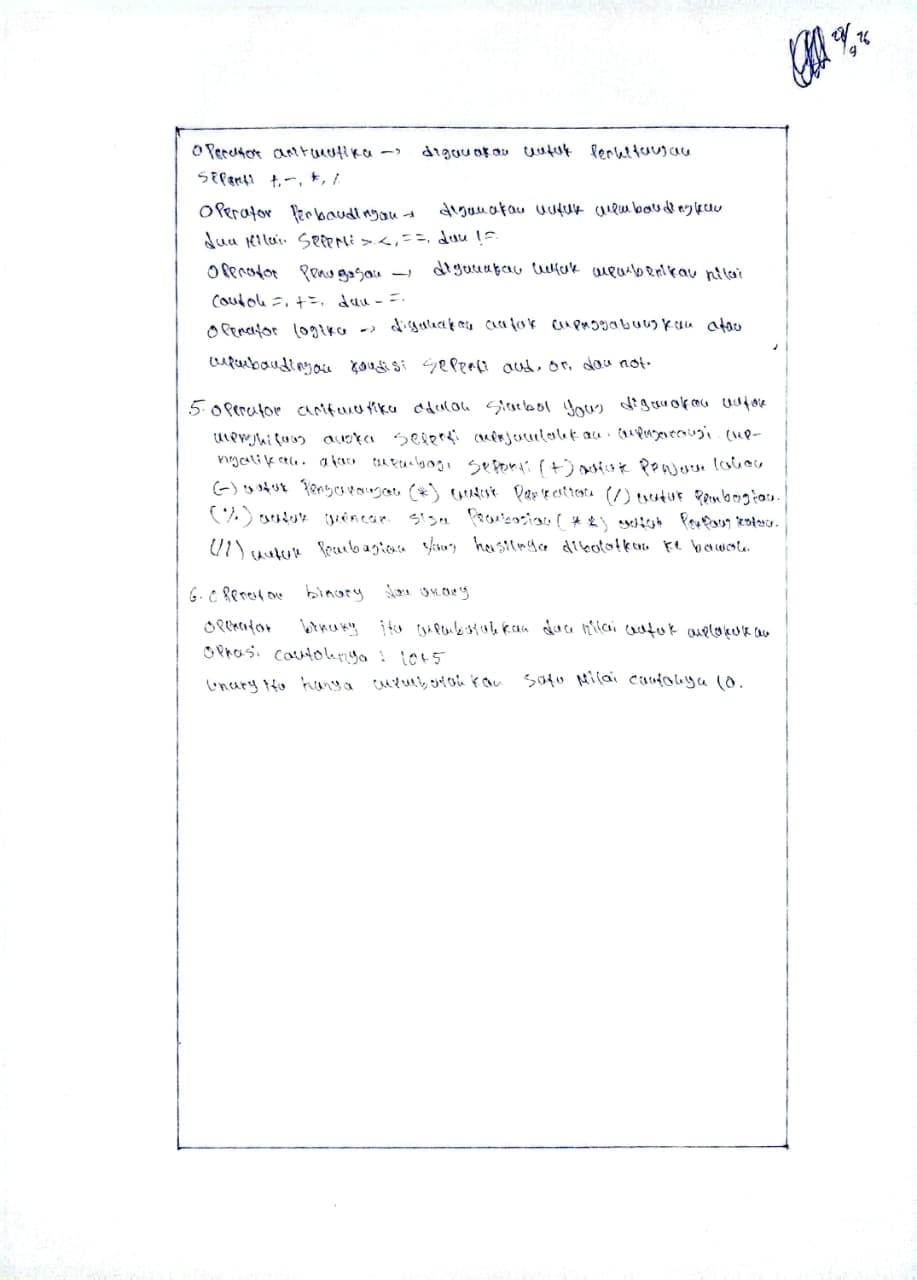 Operator aritmatika -> digunakan untuk Perhitungan
Seperti +, -, *, /.
Operator Perbandingan -> digunakan untuk membandingkan
dua nilai. Seperti > <, ==, dan !=.
Operator Penugasan -> digunakan untuk memberikan nilai
Contoh =, +=, dan -=.
Operator logika -> digunakan untuk menggabungkan atau
membandingan kondisi seperti and, or, dan not.
5. Operator aritmatika adalah Simbol yang digunakan untuk
menghitung angka seperti menjumlahkan. mengurangi. me-
ngalikan. atau membagi seperti (+) untuk Penjumlahan
(-) untuk Pengurangan (*) untuk Perkalian (/) untuk Pembagian.
(%) untuk mencari sisa Pembagian (**) untuk Perpangkatan.
(//) untuk Pembagian yang hasilnya dibulatkan ke bawah.
6. Operator binary dan unary
Operator binary itu membutuhkan dua nilai untuk melakukan
Oprasi contohnya : 10+5
Unary itu hanya membutuhkan satu Nilai contohya